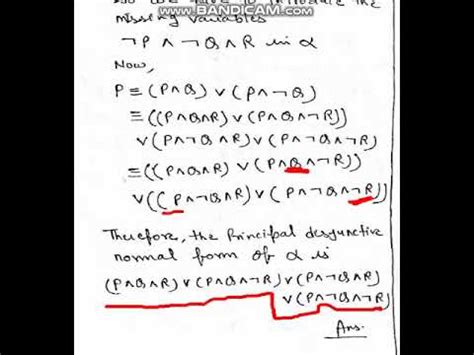 www.BANDICAM.com
so we have to introduce the
missing variables
¬P ∧ ¬Q ∧ R in α
Now,
P ≡ (P∧Q) ∨ (P∧¬Q)
≡ ((P∧Q∧R) ∨ (P∧Q∧¬R))
∨ (P∧¬Q∧R) ∨ (P∧¬Q∧¬R)
≡ ((P∧Q∧R) ∨ (P∧Q∧¬R))
∨ ((P∧¬Q∧R) ∨ (P∧¬Q∧¬R))
Therefore, the Principal desjunctive
normal form of α is
(P∧Q∧R) ∨ (P∧Q∧¬R) ∨ (P∧¬Q∧R)
∨ (P∧¬Q∧¬R)
Ans.